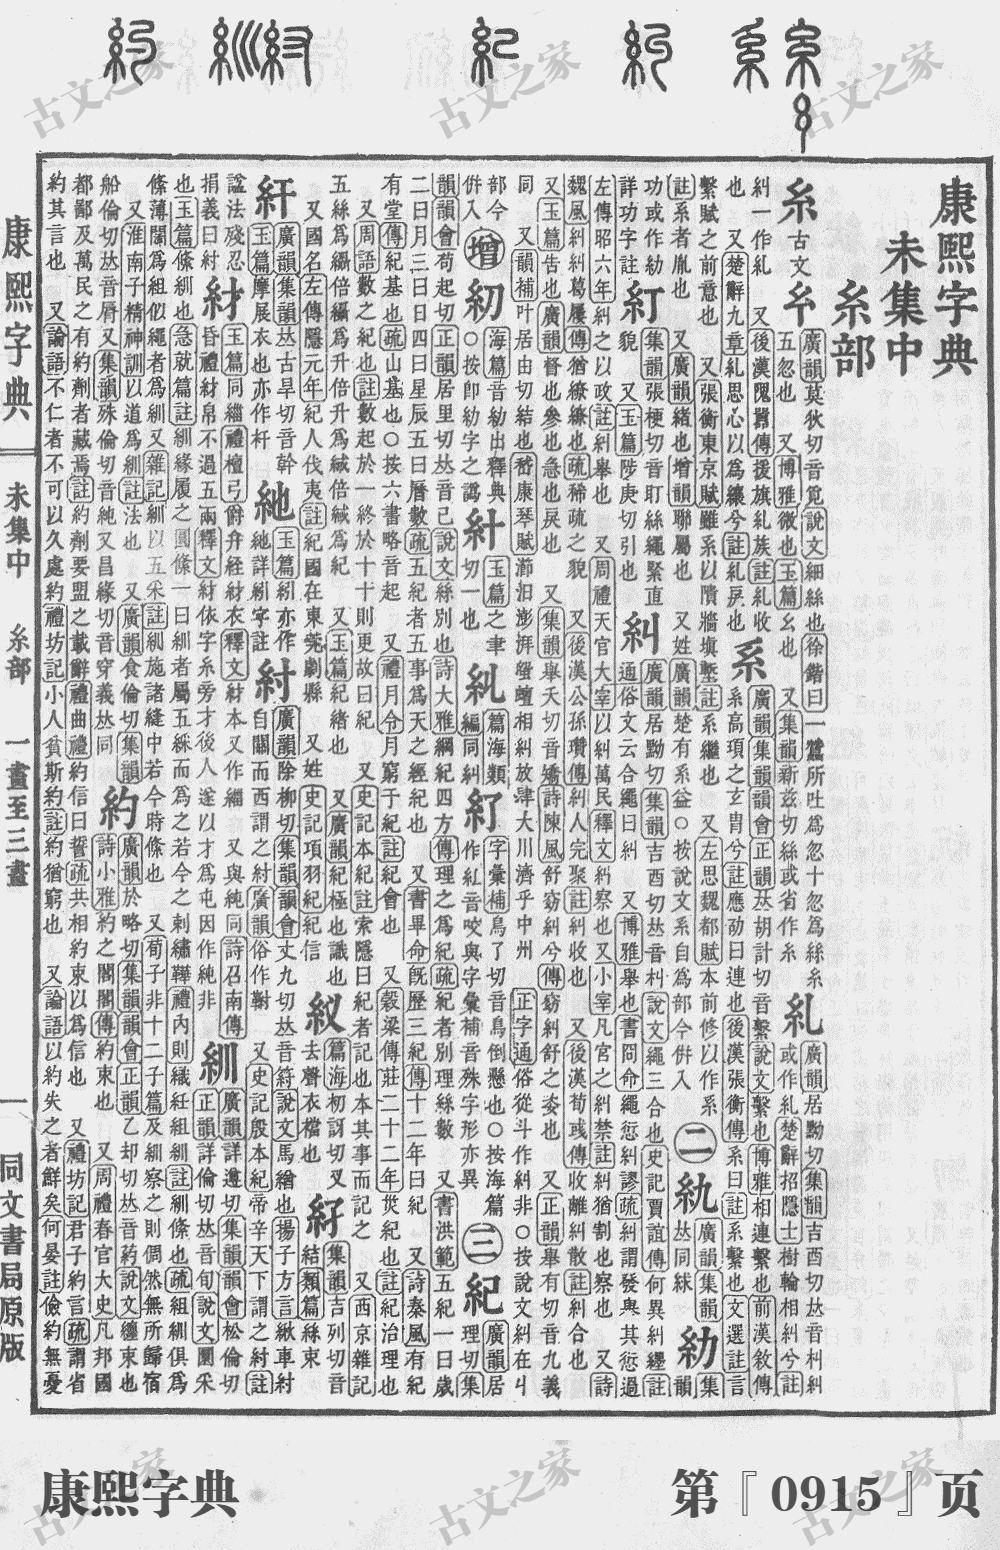 康熙字典
未集中
糸部
糸古文𢆯廣韻莫狄切音覓說文細絲也徐鍇曰一蠶所吐爲忽十忽爲絲糸
五忽也 又博雅微也玉篇幺也 又集韻新兹切絲或省作糸
糺廣韻居黝切集韻吉酉切𠀤音朻
或作糺楚辭招隱士樹輪相糾兮註
糾一作糺 又後漢隗囂傳援旗糺族註糺收
也 又楚辭九章糺思心以爲纕兮註糺戾也
系廣韻集韻韻會正韻𠀤胡計切音繫說文繫也博雅相連繫也前漢敘傳
系高頊之玄胄兮註應劭曰連也後漢張衡傳系曰註系繫也文選註言
繫賦之前意也 又張衡東京賦雖系以隤牆塡塹註系繼也 又左思魏都賦本前修以作系
註系者胤也 又廣韻緒也增韻聯屬也 又姓廣韻楚有系益○按說文系自爲部今倂入
二
糿廣韻集韻
𠀤同絿
糼集
韻
功或作糼
詳功字註
糽集韻張梗切音盯絲繩緊直
貌 又玉篇陟庚切引也
糾廣韻居黝切集韻吉酉切𠀤音朻說文繩三合也史記賈誼傳何異糾纆註
通俗文云合繩曰糾 又博雅舉也書冏命繩愆糾謬疏糾謂發舉其愆過
左傳昭六年糾之以政註糾舉也 又周禮天官大宰以糾萬民釋文糾察也又小宰凡官之糾禁註糾猶割也察也 又詩
魏風糾糾葛屨傳猶繚繚也疏稀疏之貌 又後漢公孫瓚傳糾人完聚註糾收也 又後漢荀彧傳收離糾散註糾合也
又玉篇告也廣韻督也參也急也戾也 又集韻舉夭切音矯詩陳風舒窈糾兮傳窈糾舒之姿也 又正韻舉有切音九義
同 又韻補叶居由切結也嵇康琴賦澎湃蜿蟺相糾放肆大川濟乎中州 正字通俗從斗作糾非○按說文糾在丩
部今
倂入
增
糿海篇音糼出釋典
○按卽糼字之譌
紏玉篇之聿
切一也
糺篇海類
編同糾
紆字彙補鳥了切音鳥倒懸也○按海篇
作紅音咬與字彙補音殊字形亦異
三
紀廣韻居
理切集
韻韻會苟起切正韻居里切𠀤音己說文絲別也詩大雅綱紀四方傳理之爲紀疏紀者別理絲數 又書洪範五紀一曰歲
二曰月三曰日四曰星辰五曰曆數疏五紀者五事爲天之經紀也 又書畢命旣歷三紀傳十二年曰紀 又詩秦風有紀
有堂傳紀基也疏山基也○按六書略音起 又禮月令月窮于紀註紀會也 又穀梁傳莊二十二年災紀也註紀治理也
又周語數之紀也註數起於一終於十十則更故曰紀 又史記本紀註索隱曰紀者記也本其事而記之 又西京雜記
五絲爲䌰倍䌰爲升倍升爲緎倍緎爲紀 又玉篇緒也 又廣韻極也識也
又國名左傳隱元年紀人伐夷註紀國在東莞劇縣 又姓史記項羽紀紀信
紁篇海初訝切叉
去聲衣襠也
紆集韻吉列切音
結類篇絲束
紆廣韻集韻𠀤古旱切音幹
玉篇摩展衣也亦作杆
紦玉篇紖亦作
紦詳紖字註
紂廣韻除柳切集韻韻會丈九切𠀤音紂說文馬緧也揚子方言緧車紂
自關而西謂之紂廣韻俗作䋓 又史記殷本紀帝辛天下謂之紂註
諡法殘忍
捐義曰紂
紂玉篇同緇禮檀弓爵弁絰紂衣釋文紂本又作緇 又與純同詩召南傳
昏禮紂帛不過五兩釋文紂依字糸旁才後人遂以才爲屯因作純非
紃廣韻詳遵切集韻韻會松倫切
正韻詳倫切𠀤音旬說文圜采
也玉篇絛紃也急就篇註紃緣履之圓絛一曰紃者屬五綵而爲之若今之刺繡鞾禮內則織紝組紃註紃絛也疏組紃俱爲
絛薄闊爲組似繩者爲紃又雜記紃以五采註紃施諸縫中若今時絛也 又荀子非十二子篇及紃察之則倜然無所歸宿
又淮南子精神訓以道爲紃註法也 又廣韻食倫切集韻
船倫切𠀤音脣又集韻殊倫切音純又昌緣切音穿義𠀤同
約廣韻於略切集韻韻會正韻乙却切𠀤音葯說文纏束也
詩小雅約之閣閣傳約束也 又周禮春官大史凡邦國
都鄙及萬民之有約劑者藏焉註約劑要盟之載辭禮曲禮約信曰誓疏共相約束以爲信也 又禮坊記君子約言疏謂省
約其言也 又論語不仁者不可以久處約禮坊記小人貧斯約註約猶窮也 又論語以約失之者鮮矣何晏註儉約無憂
康熙字典
未集中 糸部 一畫至三畫
一 同文書局原版
康熙字典
第『0915』页
古文之家